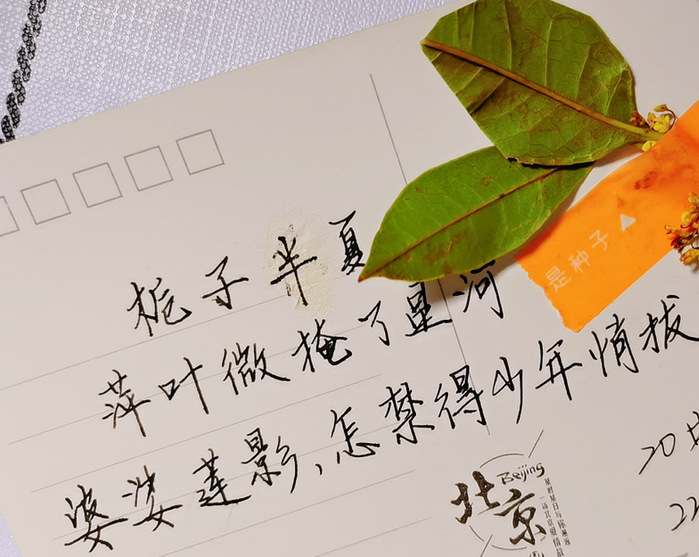 栀子半夏
萍叶微掩了星河
婆娑莲影,怎禁得少年情拔
是种子
Beijing
北京
20
22